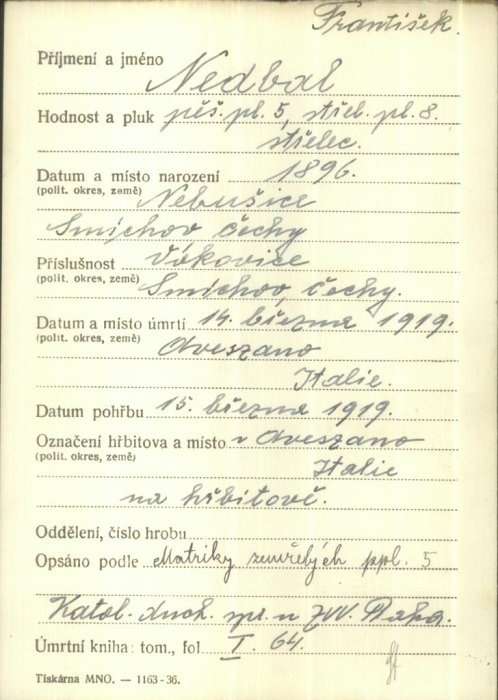 František.
Příjmení a jméno Nedbal
Hodnost a pluk pěš. pl. 5, střel. pl. 8.
střelec.
Datum a místo narození 1896.
(polit. okres, země) Nebušice
Smíchov čechy
Příslušnost Vokovice
(polit. okres, země) Smíchov, čechy.
Datum a místo úmrtí 14. března 1919.
(polit. okres, země) Aveszano
Italie.
Datum pohřbu 15. března 1919.
Označení hřbitova a místo v Aveszano
(polit. okres, země) Italie
na hřbitově.
Oddělení, číslo hrobu
Opsáno podle Matriky zemřelých ppl. 5
Katol. duch. spr. u ZVV. Praha.
Úmrtní kniha: tom., fol. I. 64.
Tiskárna MNO. — 1163-36.